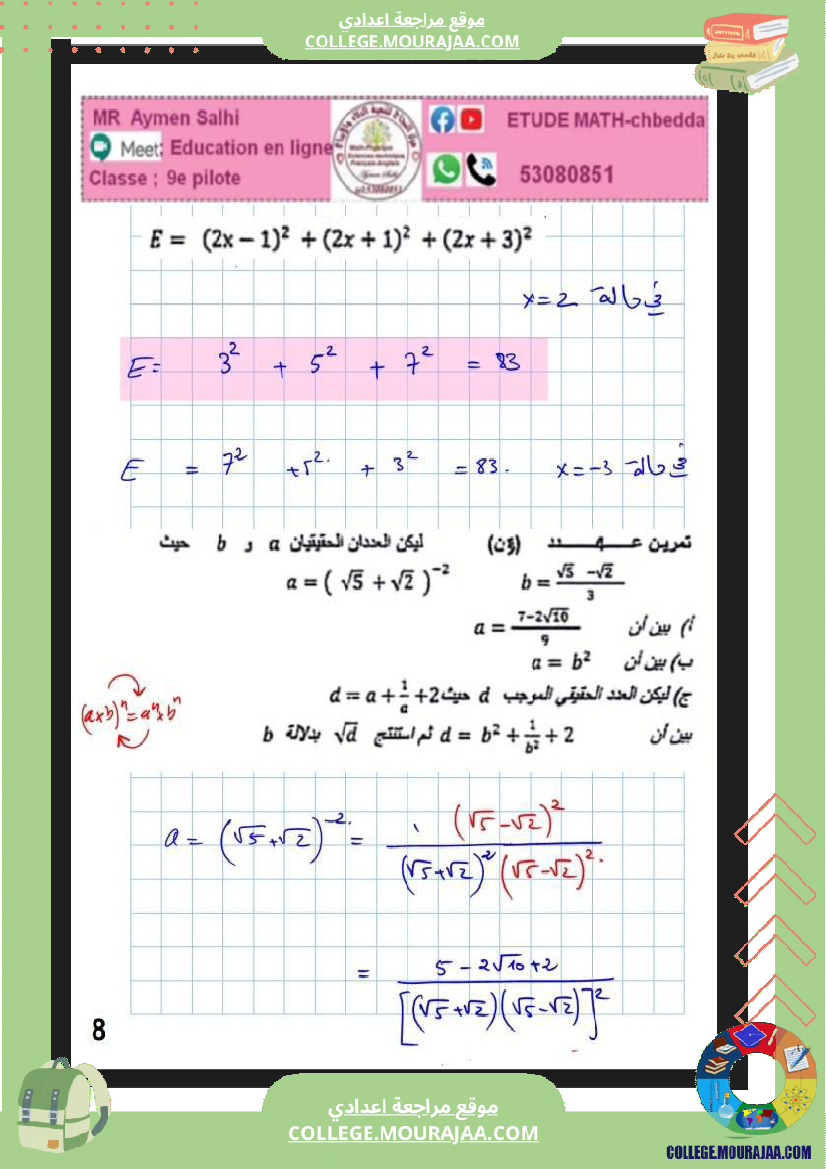 موقع مراجعة اعدادي
COLLEGE.MOURAJAA.COM
MR Aymen Salhi
Meet: Education en ligne
Classe ; 9e pilote
ETUDE MATH-chbedda
53080851
E = (2x − 1)² + (2x + 1)² + (2x + 3)²
في حالة x = 2
E = 3² + 5² + 7² = 83
E = 7² + 5² + 3² = 83. في حالة x = −3
تمرين عـــدد ليكن العددان الحقيقيان a و b حيث
a = ( √5 + √2 )⁻² b = (√5 − √2)/3
أ) بين أن a = (7−2√10)/9
ب) بين أن a = b²
ج) ليكن العدد الحقيقي الموجب d حيث d = a + 1/a + 2
بين أن d = b² + 1/b² + 2 ثم استنتج √d بدلالة b
(a×b)ⁿ = aⁿ×bⁿ
a = (√5 + √2)⁻² = 1 (√5 − √2)² / (√5 + √2)² (√5 − √2)²
= 5 − 2√10 + 2 / [(√5 + √2)(√5 − √2)]²
8
موقع مراجعة اعدادي
COLLEGE.MOURAJAA.COM
COLLEGE.MOURAJAA.COM